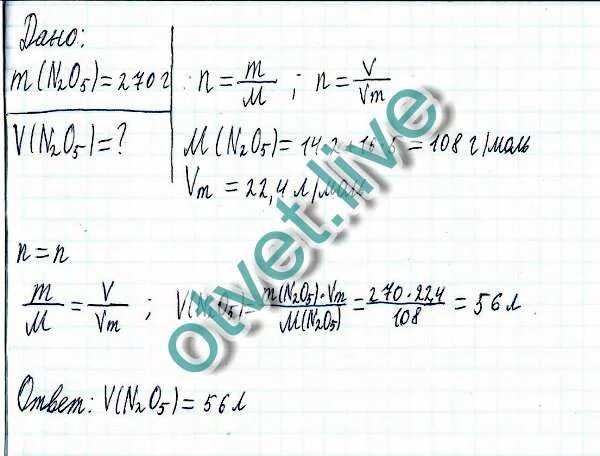 Дано:
m(N₂O₅)=270г
n = m/M ; n = V/Vm
V(N₂O₅)=?
M(N₂O₅)= 14·2+16·5 = 108 г/моль
Vm = 22,4 л/моль
n = n
m/M = V/Vm ; V(N₂O₅)= m(N₂O₅)·Vm/M(N₂O₅) = 270·22,4/108 = 56 л.
Ответ: V(N₂O₅) = 56 л
otvet.live